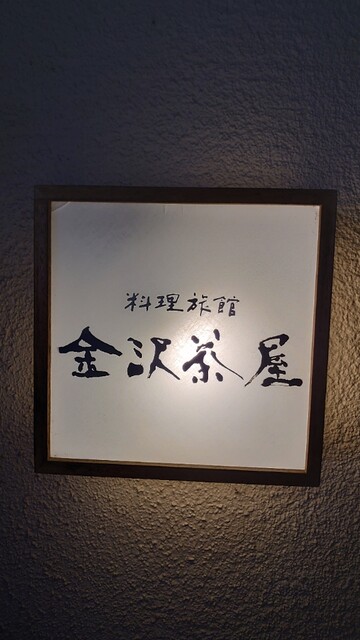 料理旅館
金沢茶屋